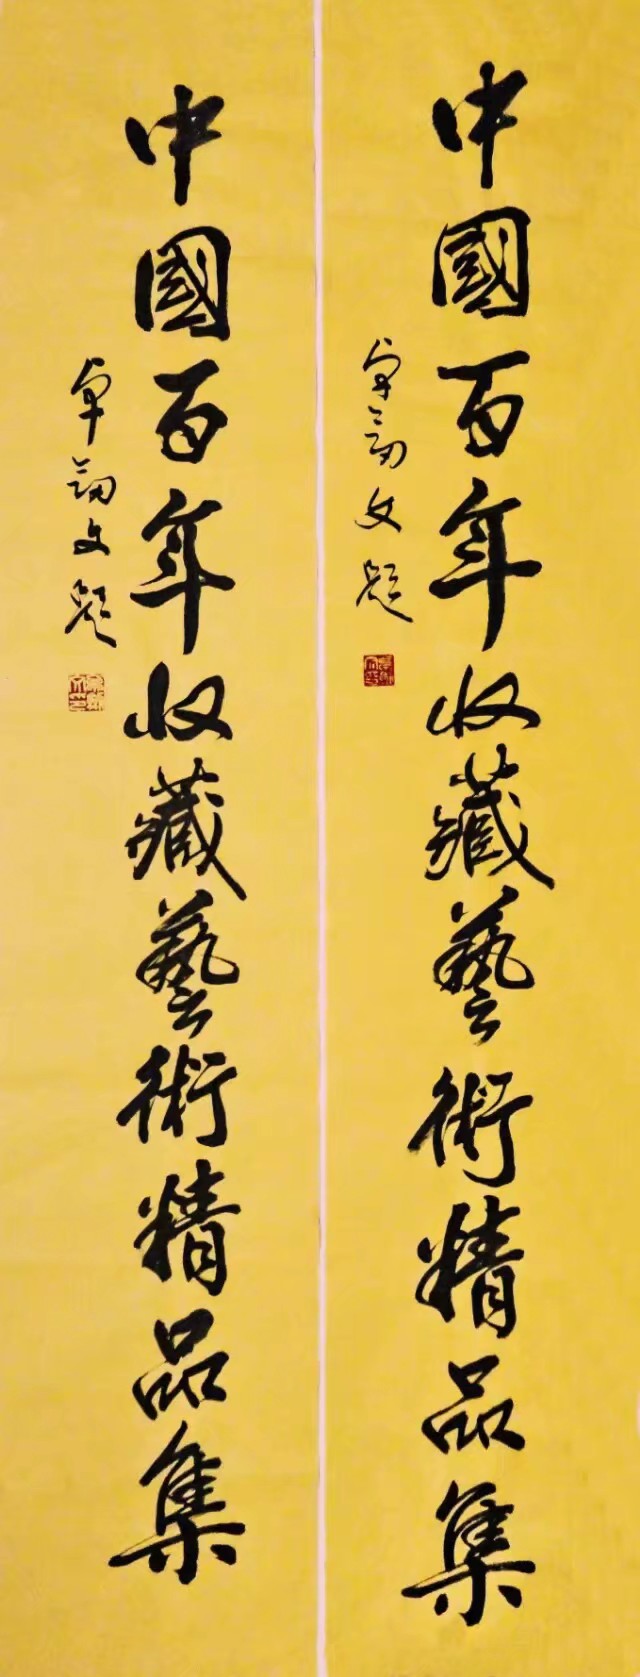 中國百年收藏藝術精品集
文題
中國百年收藏藝術精品集
文題